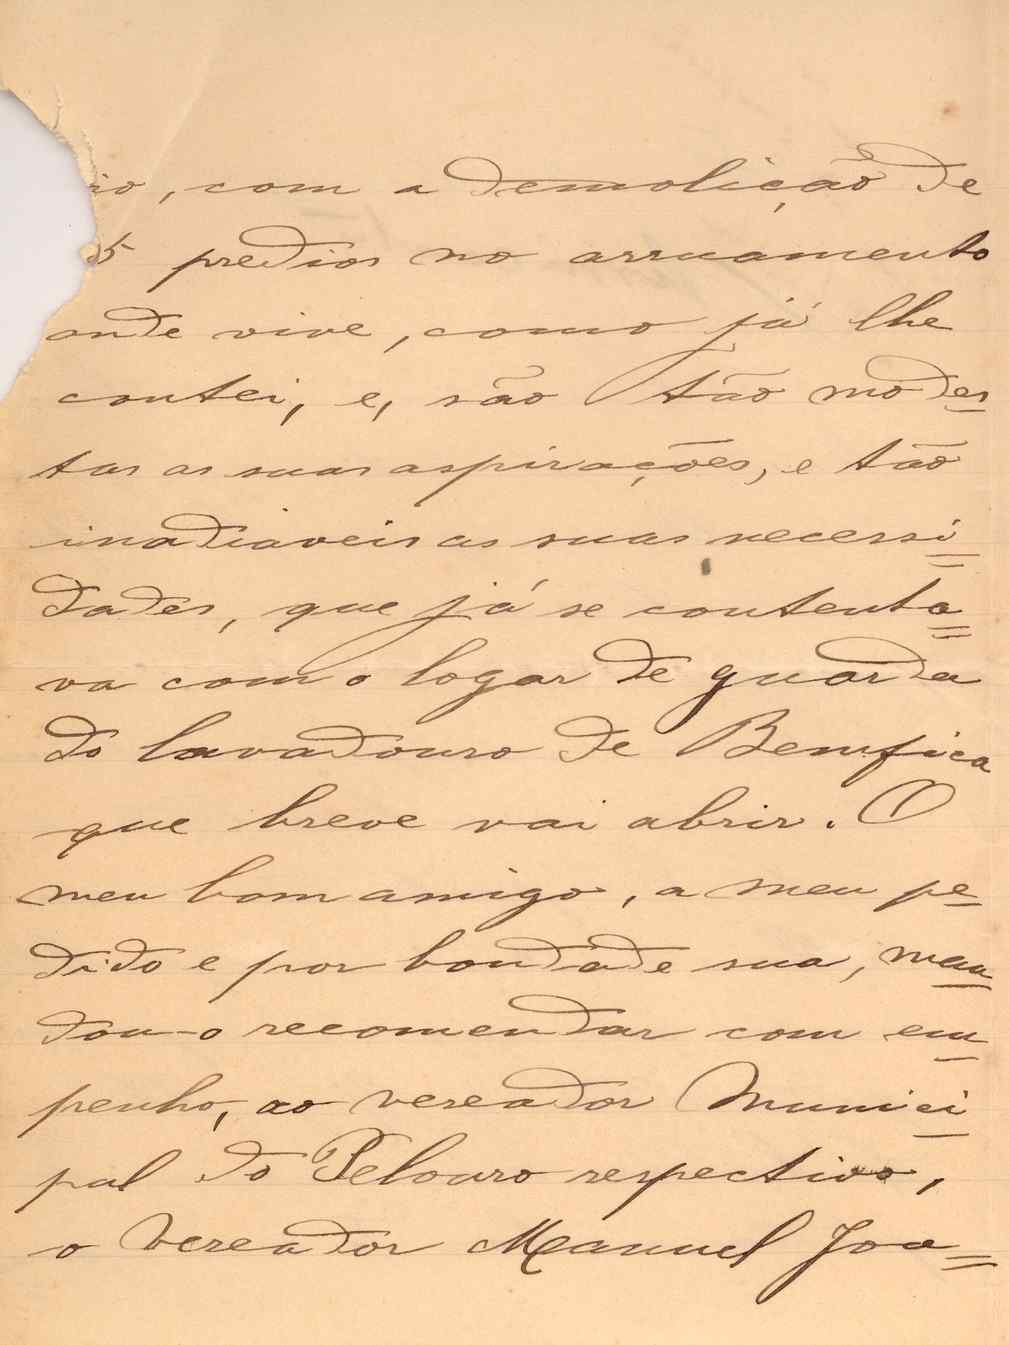 io, com a demolição de
5 predios no arruamento
onde vive, como já lhe
contei, e, são tão modes-
tas as suas aspirações, e tão
inadiáveis as suas necessi=
dades, que já se contenta=
va com o logar de guarda
do lavadouro de Bemfica
que breve vai abrir. O
meu bom amigo, a meu pe-
dido e por bondade sua, man-
dou-o recomendar com em-
penho, ao vereador Munici-
pal do Pelouro respectivo,
o Vereador Manuel Joa=